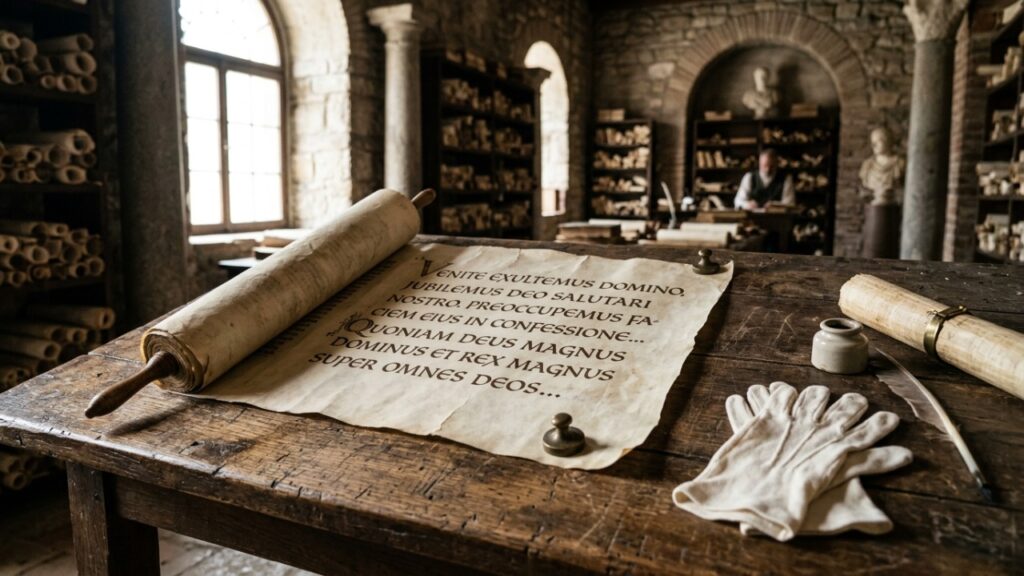 VENITE EXULTEMUS DOMINO,
JUBILEMUS DEO SALUTARI
NOSTRO. PREOCCUPEMUS FA-
CIEM EIUS IN CONFESSIONE...
QUONIAM DEUS MAGNUS
DOMINUS ET REX MAGNUS
SUPER OMNES DEOS...